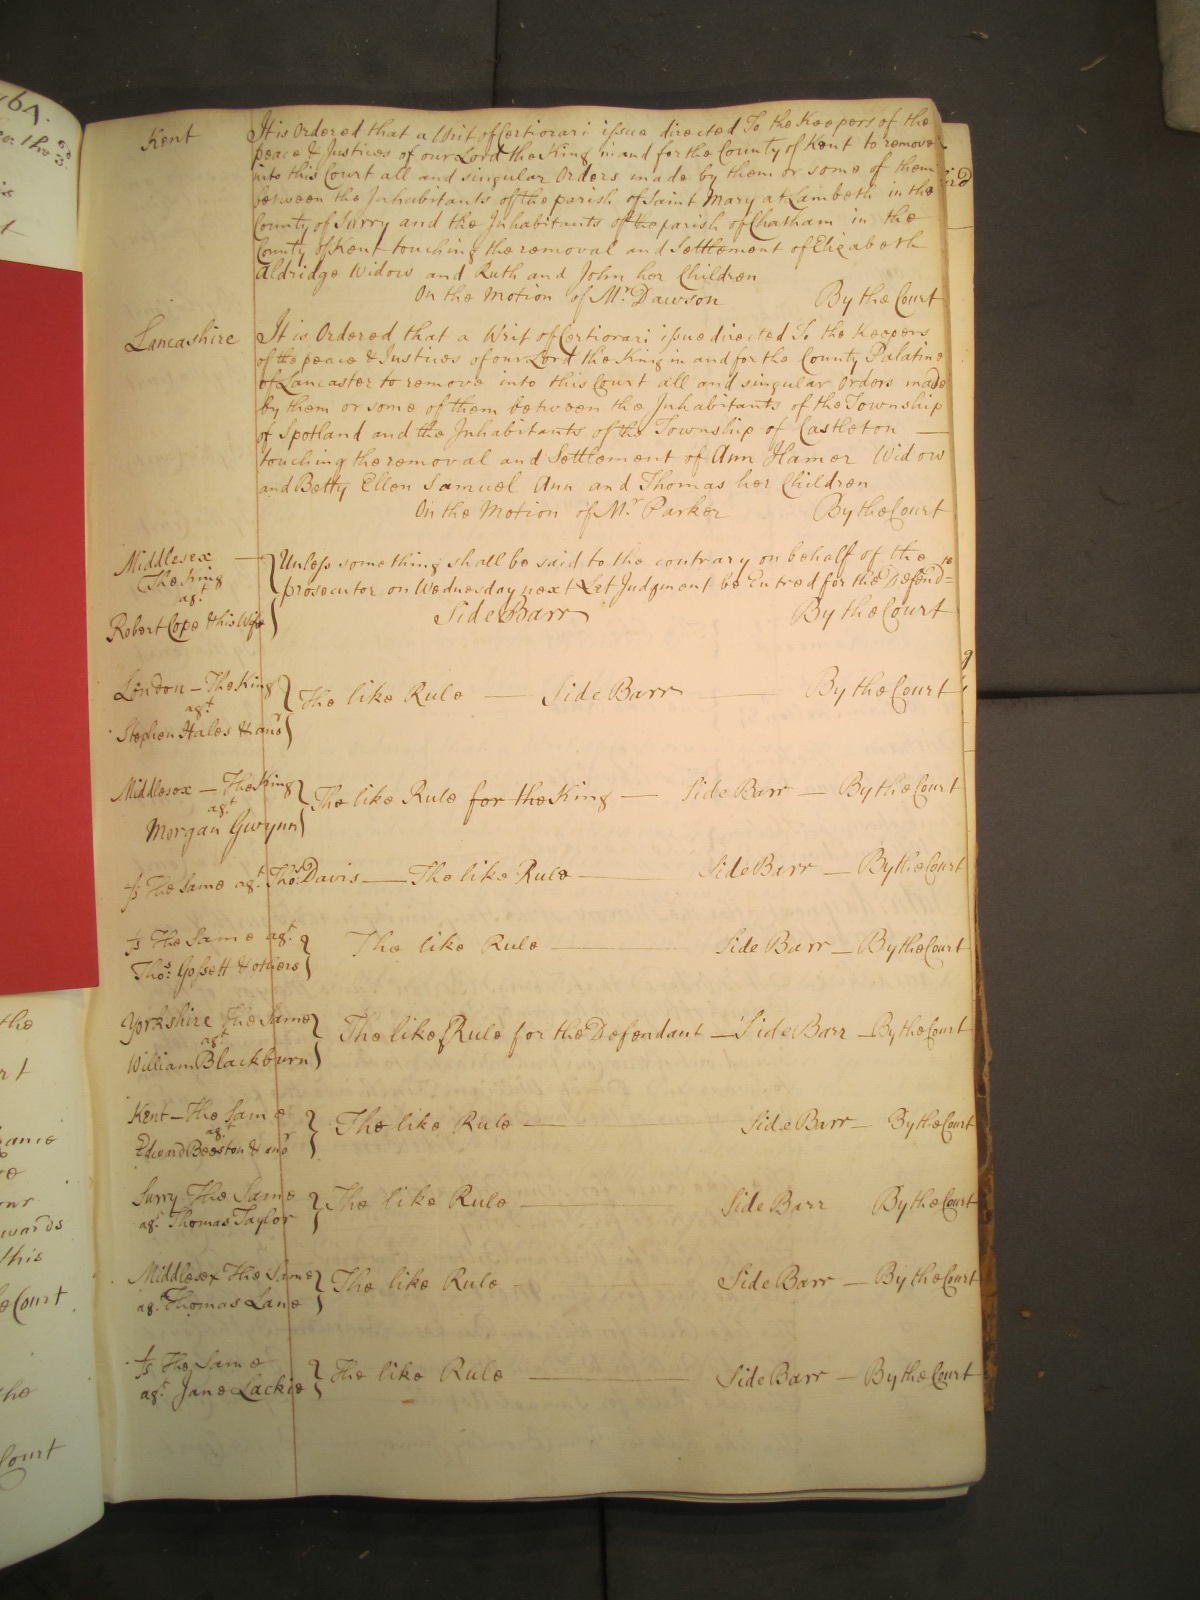 Kent
It is Ordered that a Writ of Certiorari issue directed To the Keepers of the
peace & Justices of our Lord the King in and for the County of Kent to remove
into this Court all and singular Orders made by them or some of them
between the Inhabitants of the parish of Saint Mary at Lambeth in the
County of Surry and the Inhabitants of the parish of Chatham in the
County of Kent touching the removal and Settlement of Elizabeth
Aldridge Widow and Ruth and John her Children
On the Motion of Mr. Dawson By the Court
Lancashire
It is Ordered that a Writ of Certiorari issue directed To the Keepers
of the peace & Justices of our Lord the King in and for the County Palatine
of Lancaster to remove into this Court all and singular Orders made
by them or some of them between the Inhabitants of the Township
of Spotland and the Inhabitants of the Township of Castleton —
touching the removal and Settlement of Ann Hamer Widow
and Betty Ellen Samuel Ann and Thomas her Children
On the Motion of Mr. Parker By the Court
Middlesex —
The King
agt.
Robert Cope & his Wife
Unless something shall be said to the contrary on behalf of the
prosecutor on Wednesday next Let Judgment be Entred for the Defend=te
Side Barr By the Court
London — The King
agt.
Stephen Hales & anor
The like Rule — Side Barr — By the Court
Middlesex — The King
agt.
Morgan Gwynn
The like Rule for the King — Side Barr — By the Court
/s The Same agt. Thos. Davis — The like Rule — Side Barr — By the Court
/s The Same agt.
Thos. Gossett & others
The like Rule — Side Barr — By the Court
Yorkshire The Same
agt.
William Blackburn
The like Rule for the Defendant — Side Barr — By the Court
Kent — The Same
agt.
Edward Beeston & anor
The like Rule — Side Barr — By the Court
Surry The Same
agt. Thomas Taylor
The like Rule — Side Barr By the Court
Middlesex The Same
agt. Thomas Lane
The like Rule — Side Barr — By the Court
/s The Same
agt. Jane Lackie
The like Rule — Side Barr — By the Court
the
wards
this
Court
the
Court